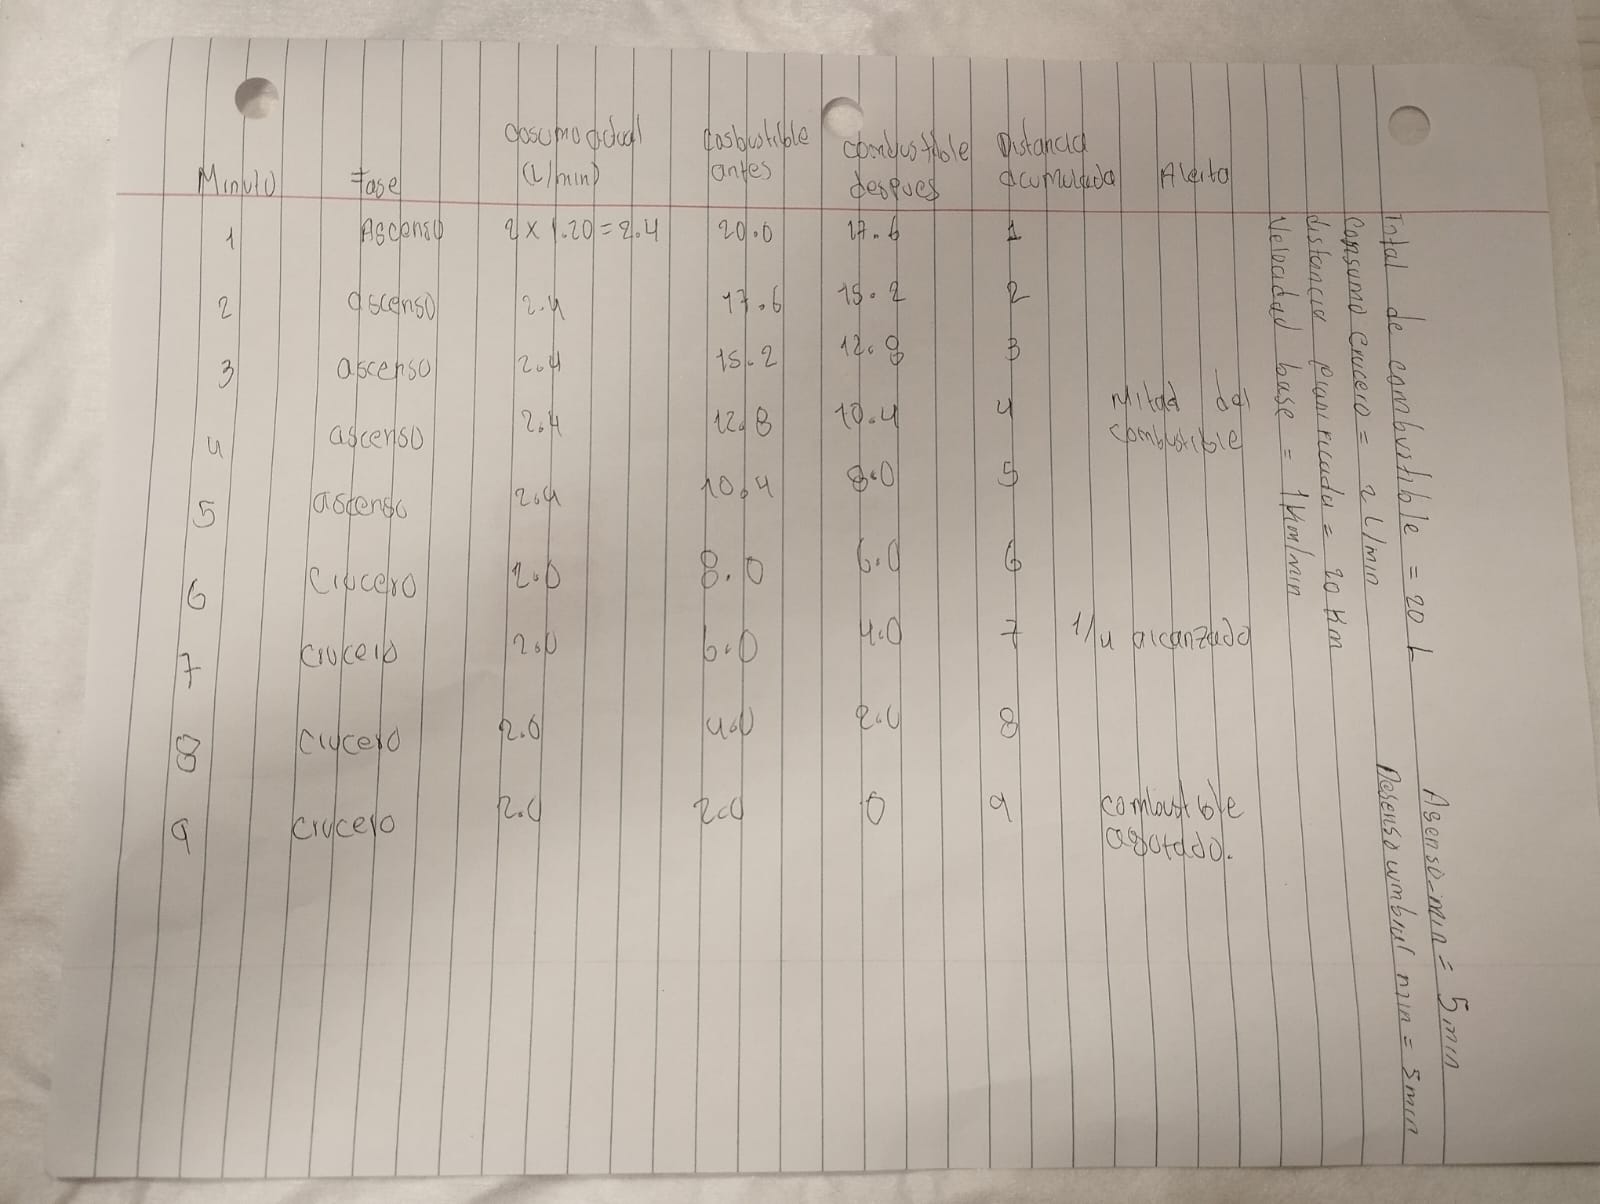 Minuto Fase cosumo actual (L/min) cosbustible antes combustible despues Distancia acumulada Alerta
1 Ascenso 2 x 1.20 = 2.4 20.0 17.6 1
2 ascenso 2.4 17.6 15.2 2
3 ascenso 2.4 15.2 12.8 3
4 ascenso 2.4 12.8 10.4 4 Mitad del combustible
5 ascenso 2.4 10.4 8.0 5
6 Crucero 2.0 8.0 6.0 6
7 crucero 2.0 6.0 4.0 7 1/4 alcanzado
8 crucero 2.0 4.0 2.0 8
9 crucero 2.0 2.0 0 9 combustible agotado.
Total de combustible = 20 L
Consumo crucero = 2 L/min
distancia planificada = 20 Km
Velocidad base = 1 Km/min
Asenso-min = 5 min
Desenso umbral min = 5 min